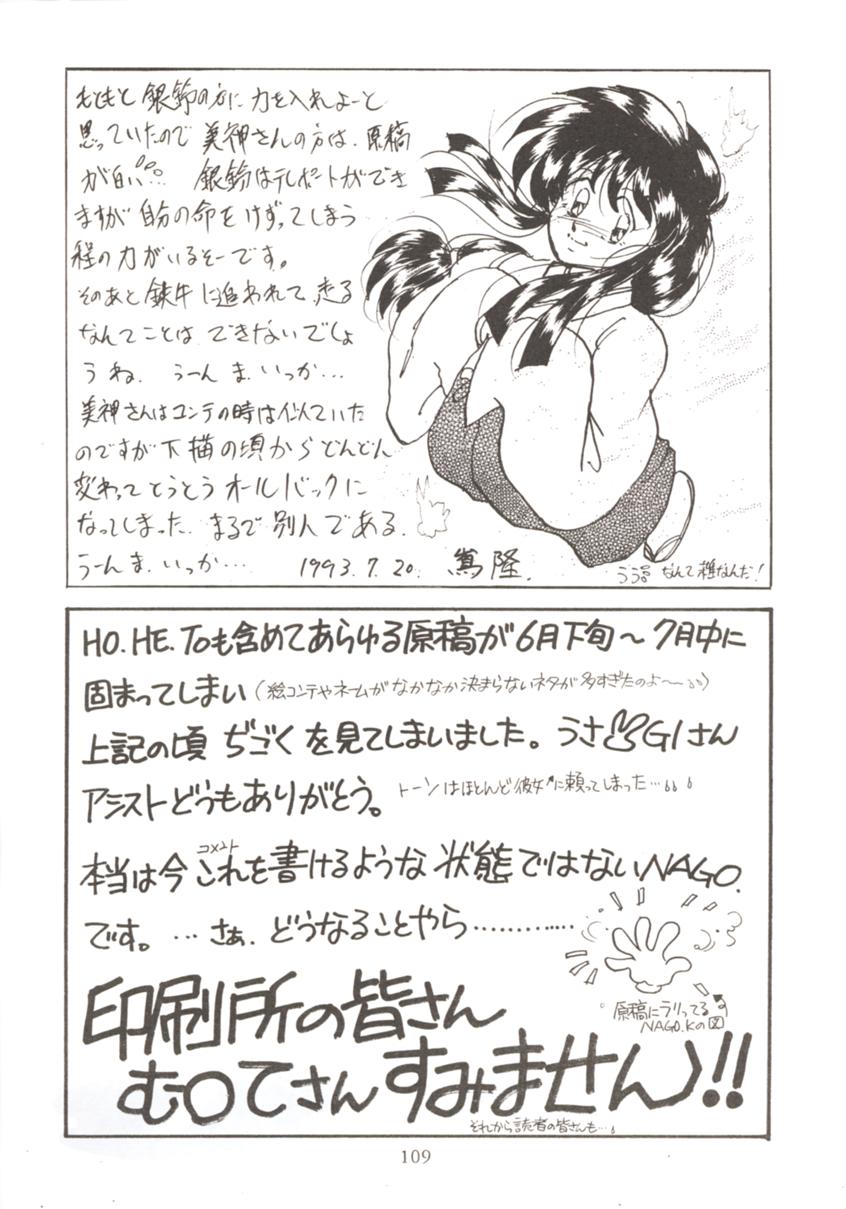 もともと銀鈴の方に力を入れよーと
思っていたので美神さんの方は、原稿
が白い… 銀鈴はテレポートができ
ますが自分の命をけずってしまう
程の力がいるそーです。
そのあと鉄牛に追われて、走る
なんてことは できないでしょ
うね。うーん ま、いっか…
美神さんはコンテの時は似ていた
のですが下描の頃からどんどん
変わってとうとうオールバックに
なってしまった。まるで別人である。
うーん ま、いっか… 1993.7.20. 嵩 隆.
うう なんて雑なんだ!
HO.HE.Toも含めてあらゆる原稿が6月下旬～7月中に
固まってしまい(絵コンテやネームがなかなか決まらないネタが多すぎたのよ〜)
上記の頃 ぢごくを見てしまいました。うさGIさん
アシストどうもありがとう。トーンはほとんど彼女に頼ってしまった…
コメント
本当は今これを書けるような状態ではないNAGO.
です。…さぁ、どうなることやら…………
原稿にラリってる
NAGO.Kの図
印刷所の皆さん
む○てさんすみません!!
それから読者の皆さんも…
109